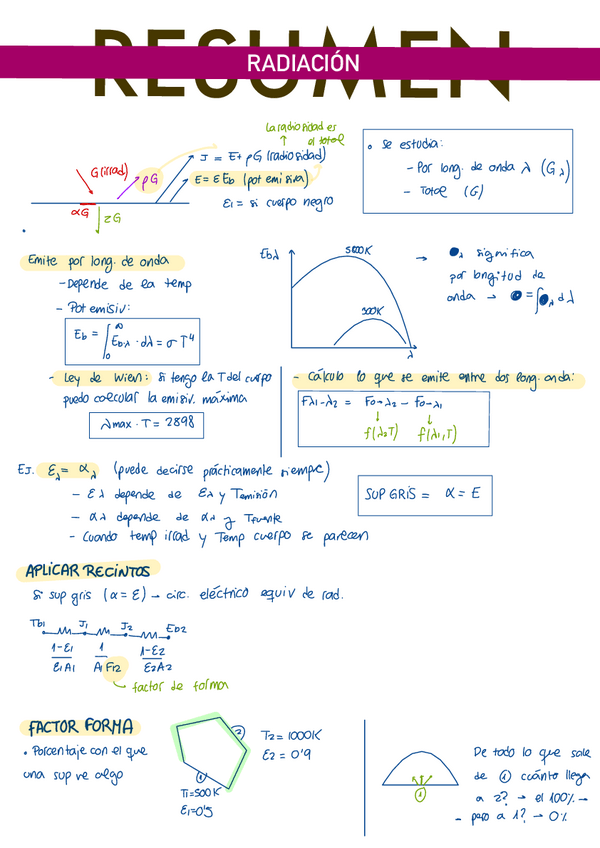 RESUMEN
RADIACIÓN
La radiosidad es
el total
J = E + ρG (radiosidad)
G (irrad)
ρG
E = εEb (pot emisiva)
αG
τG
ε1 = si cuerpo negro
• Se estudia:
- Por long. de onda λ (Gλ)
- Total (G)
Emite por long. de onda
- Depende de la temp
- Pot emisiv:
Eb = ∫₀^∞ Ebλ · dλ = σ T⁴
Ebλ
5800K
300K
λ
→ ●λ significa
por longitud de
onda → ● = ∫●λ dλ
- Ley de Wien: si tengo la T del cuerpo
puedo calcular la emisiv. máxima
λmax · T = 2898
- Cálculo lo que se emite entre dos long. onda:
Fλ1-λ2 = F0-λ2 - F0-λ1
f(λ2T) f(λ1,T)
EJ. ελ = αλ (puede decirse prácticamente siempre)
- ελ depende de ελ y Temisión
- αλ depende de αλ y Tfuente
- Cuando temp irrad y Temp cuerpo se parecen
SUP GRIS = α = E
APLICAR RECINTOS
Si sup gris (α = ε) → circ. eléctrico equiv de rad.
Tb1 J1 J2 Eb2
1-ε1 1 1-ε2
ε1A1 A1F12 ε2A2
factor de forma
FACTOR FORMA
• Porcentaje con el que
una sup ve algo
2
T2 = 1000K
ε2 = 0'9
1
T1 = 500K
ε1 = 0'5
1
De todo lo que sale
de ① cuánto llega
a 2? → el 100% →
- pero a 1? → 0%